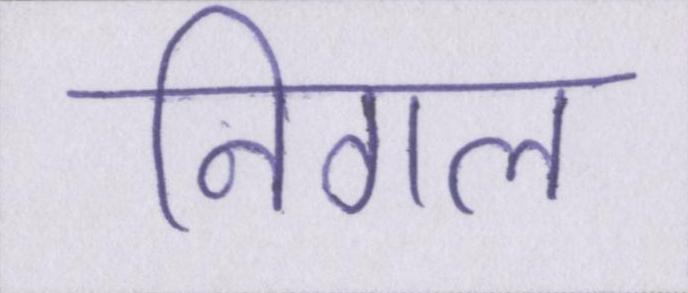 निगल